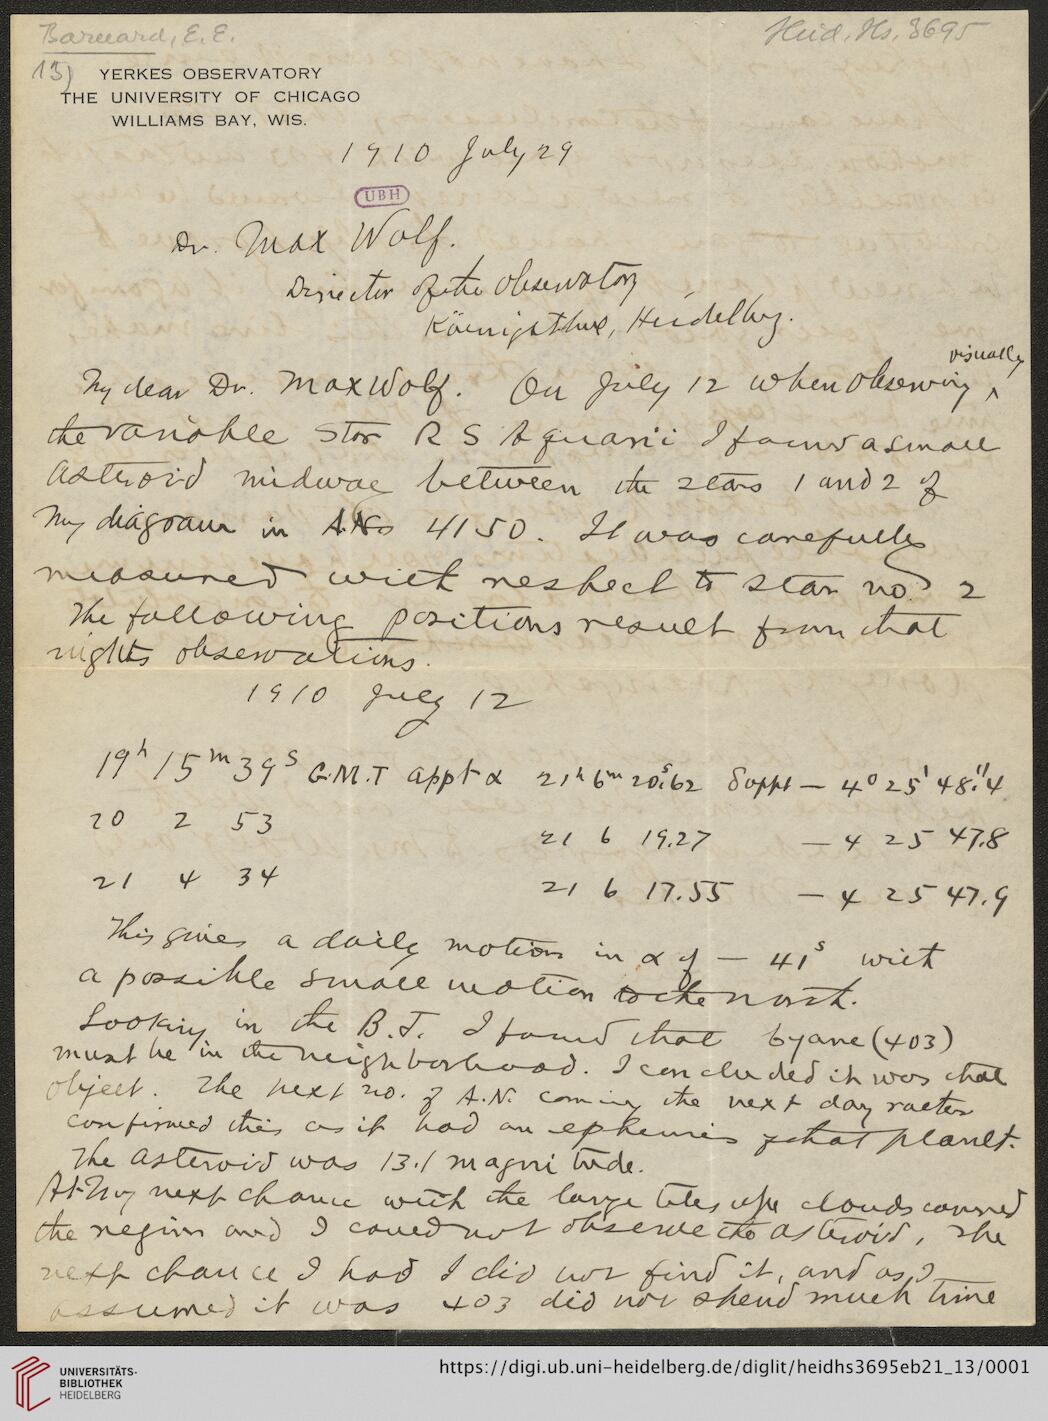 Barnard, E. E.
Heid. Hs. 3695
13)
YERKES OBSERVATORY
THE UNIVERSITY OF CHICAGO
WILLIAMS BAY, WIS.
1910 July 29
UBH
Dr. Max Wolf.
Director of the Observatory
Köenigsthul, Heidelbug.
My dear Dr. Max Wolf. On July 12 when observing visually
the variable star R S Aquarii I found a small
asteroid midway between the stars 1 and 2 of
my diagram in A.N. 4150. It was carefully
measured with respect to star no. 2
The following positions result from that
nights observations.
1910 July 12
19h 15m 39s G.M.T appt α 21h 6m 20s.62 δ appt – 4° 25' 48".4
20 2 53 21 6 19.27 – 4 25 47.8
21 4 34 21 6 17.55 – 4 25 47.9
This gives a daily motion in α of – 41s with
a possible small motion to the north.
Looking in the B.J. I found that Cyane (403)
must be in the neighborhood. I concluded it was that
object. The next no. of A.N. coming the next day rather
confirmed this as it had an ephemeris of that planet.
The asteroid was 13.1 magnitude.
At my next chance with the large telescope clouds covered
the region and I could not observe the asteroid. The
next chance I had I did not find it, and as I
assumed it was 403 did not spend much time
UNIVERSITÄTS-
BIBLIOTHEK
HEIDELBERG
https://digi.ub.uni-heidelberg.de/diglit/heidhs3695eb21_13/0001